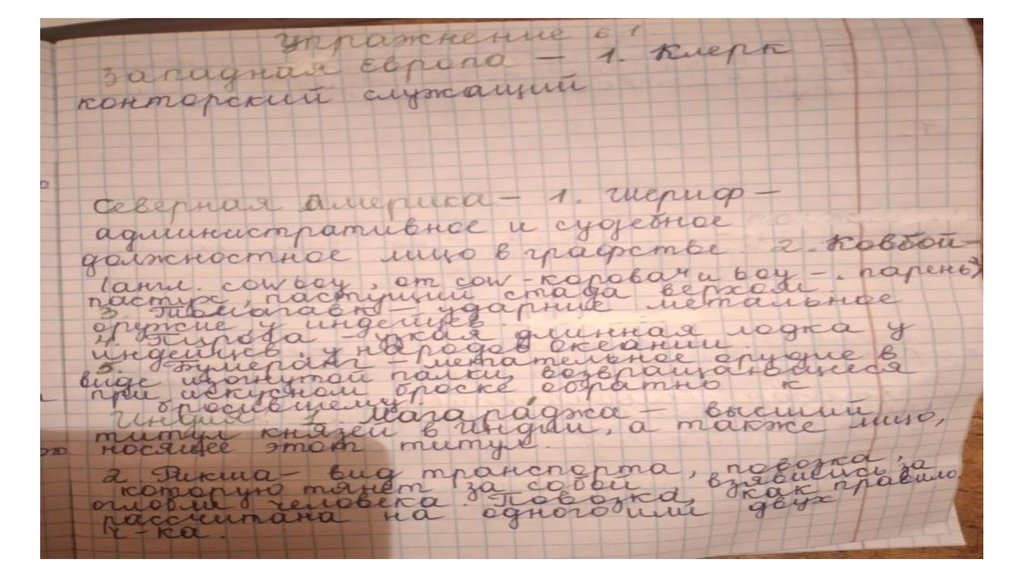 Упражнение 61.
Западная Европа - 1. Клерк -
конторский служащий
Северная Америка - 1. шериф -
административное и судебное
должностное лицо в графстве. 2. Ковбой -
(англ. cowboy, от cow - корова и boy - парень)
пастух, пасущий стада верхом.
3. Томагавк - ударное метальное
оружие у индейцев.
4. Пирога - узкая длинная лодка у
индейцев, у народов океании.
5. Бумеранг - метательное орудие в
виде изогнутой палки, возвращающееся
при искусном броске обратно к
бросившему.
Индия 1. Магараджа - высший
титул князей в Индии, а также лицо,
носящее этот титул.
2 Рикша - вид транспорта, повозка,
которую тянет за собой, взявшись за
оглобли человека. Повозка, как правило
рассчитана на одного или двух
ч-ка.